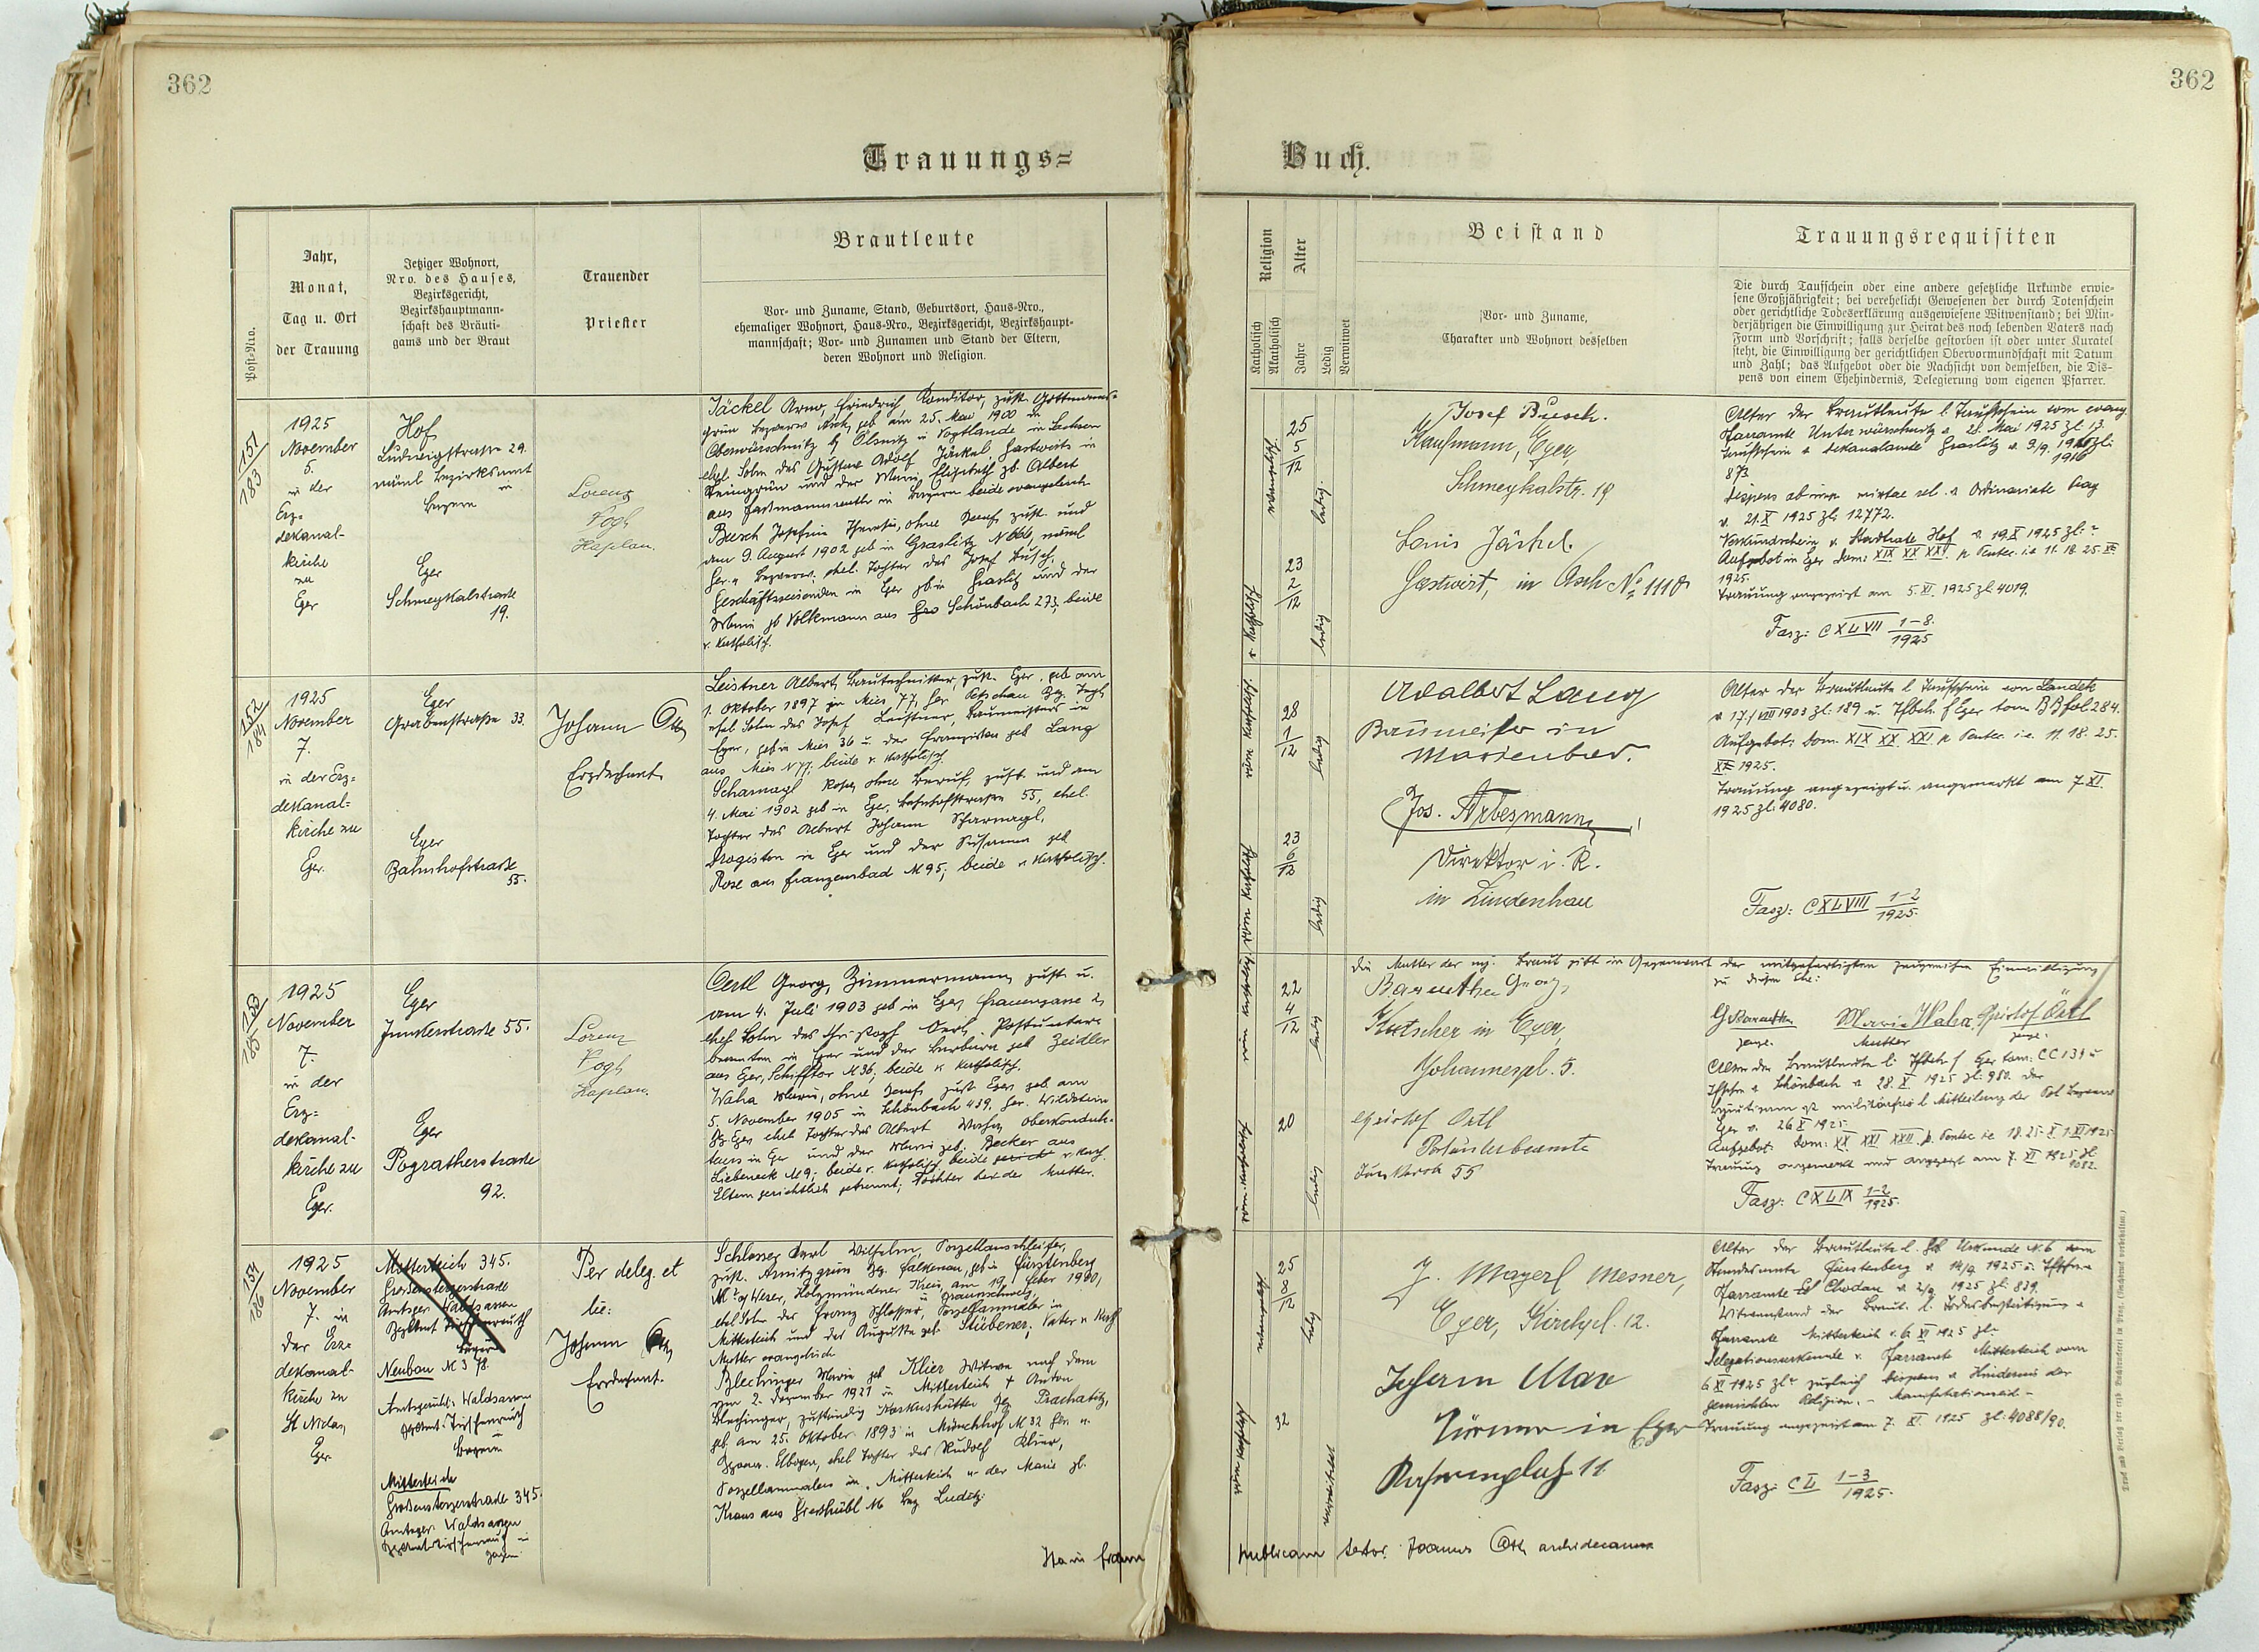 362
362
Trauungs=
Buch.
Post=Nro.
Jahr,
Monat,
Tag u. Ort
der Trauung
Jetziger Wohnort,
Nro. des Hauses,
Bezirksgericht,
Bezirkshauptmann-
schaft des Bräuti-
gams und der Braut
Trauender
Priester
Brautleute
Vor- und Zuname, Stand, Geburtsort, Haus-Nro.,
ehemaliger Wohnort, Haus-Nro., Bezirksgericht, Bezirkshaupt-
mannschaft; Vor- und Zunamen und Stand der Eltern,
deren Wohnort und Religion.
Religion
Katholisch
Akatholisch
Alter
Jahre
Ledig
Verwitwet
Beistand
Vor- und Zuname,
Charakter und Wohnort desselben
Trauungsrequisiten
Die durch Taufschein oder eine andere gesetzliche Urkunde erwie-
sene Großjährigkeit; bei verehelicht Gewesenen der durch Totenschein
oder gerichtliche Todeserklärung ausgewiesene Witwenstand; bei Min-
derjährigen die Einwilligung zur Heirat des noch lebenden Vaters nach
Form und Vorschrift; falls derselbe gestorben ist oder unter Kuratel
steht, die Einwilligung der gerichtlichen Obervormundschaft mit Datum
und Zahl; das Aufgebot oder die Nachsicht von demselben, die Dis-
pens von einem Ehehindernis, Delegierung vom eigenen Pfarrer.
151
183
1925
November
5.
in der
Erz-
dekanal-
kirche
zu
Eger
Hof
Ludwigstrasse 29.
Bezirksamt
in
Bayern
Eger
Schmeykalstrasse
19.
Lorenz
Vogl
Kaplan.
Jäckel Arno, Friedrich, Konditor, zust. Gottmanns-
grün Bezverw Asch, geb am 25. Mai 1900 in
Oberwürschnitz b Ölsnitz i Vogtlande in Sachsen
ehel Sohn des Gustav Adolf Jäckel, Gastwirts in
und der Marie Elisabeth gb. Albert
aus in Bayern beide evangelisch
Busch Josefine Theresia, ohne Beruf, zust. und
am 9. August 1902 geb in Graslitz
Ger. u Bezverw. ehel. Tochter des Josef Busch,
Geschäftsreisenden in Eger gb in Graslitz und der
Marie gb Volkmann aus Schönbach 273, beide
r. katholisch.
25
5
12
ledig.
23
2
12
ledig
Josef Buesch.
Kaufmann, Eger,
Schmeykalstr. 19
Louis Jäckel
Gastwirt, in Asch No 1110
Alter der Brautleute l. Taufschein vom evang.
Pfarramte Unterwürschnitz v. 28. Mai 1925 Zl 13.
Taufschein v Dekanalamte Graslitz v. 9/9.
873
Dispens ab imp. mixtae rel. v Ordinariate Prag
v. 21. X 1925 Zl: 12772.
Verkündschein v. Stadtrate Hof v. 19. X 1925 Zl: -
Aufgebot in Eger dom: XIX XX XXI. p Pentec. i.e 11. 18. 25. X.
1925.
Trauung angezeigt am 5. XI. 1925 Zl: 4019.
Fasz: CXLVII 1-8.
1925
152
184
1925
November
7.
in der Erz-
dekanal-
kirche zu
Eger.
Eger
Grabenstraße 33.
Eger
Bahnhofstrasse
55.
Johann Oth
Erzdechant
Leistner Albert, Bautechniker, zust. Eger, geb am
1. Oktober 1897 zu Mies 77, Ger. Petschau Bz. Tepl
ehel Sohn des Josef Leistner, Baumeisters in
Eger, geb in Mies 36 u. der Franziska geb Lang
aus Mies N 77; beide r. katholisch.
Scharnagl Rosa, ohne Beruf, zust. und am
4. Mai 1902 geb in Eger, Bahnhofstrasse 55, ehel.
Tochter des Albert Johann Scharnagl,
Drogisten in Eger und der Susanna geb
Rose aus Franzensbad N 95; beide r katholisch.
28
1
12
ledig
23
6
12
ledig
Adalbert Lang
Baumeister in
Marienbad.
Jos. Arbesmann
Direktor i. R.
in Lindenhau
Alter der Brautleute l Taufschein von Landek
v 17./VIII 1903 Zl: 189 u. Tfbch. f Eger tom BB fol 284.
Aufgebot: Dom. XIX XX. XXI. p Pentec. i.e. 11. 18. 25.
X 1925.
Trauung angezeigt u. angemerkt am 7. XI.
1925 Zl: 4080.
Fasz: CXLVIII 1-2
1925.
153
185
1925
November
7.
in der
Erz-
dekanal-
kirche zu
Eger.
Eger
Junkerstrasse 55.
Eger
Pograterstrasse
92.
Lorenz
Vogl
Kaplan.
Oertl Georg, Zimmermann, zust. u.
am 4. Juli 1903 geb in Eger, Frauengasse 2,
ehel Sohn des Christoph Oertl, Postunter-
beamten in Eger und der Barbara geb Zeidler
aus Eger, Schifftor N 36, beide r katholisch.
Waha Marie, ohne Beruf, zust Eger geb am
5. November 1905 in Schönbach 439, Ger. Wildstein
Bz. Eger, ehel Tochter des Albert Waha, Oberkonduk-
teurs in Eger und der Marie geb. Becker aus
Liebeneck N 9; beide r. katholisch
Eltern gerichtlich getrennt; Tochter bei der Mutter.
22
4
12
ledig
20
ledig
Die Mutter der mj. Braut gibt in Gegenwart der mitgefertigten Zeugen ihre Einwilligung
zu dieser Ehe:
Bareuther Georg,
Kutscher in Eger,
Johannespl. 5.
Cristof Örtl
Postunterbeamte
Junkerstr 55
G. Bareuther Marie Waha Cristof Örtl
Zeuge. Mutter Zeuge.
Alter der Brautleute l: Tfbch f Eger tom: CC 134 u
Tfschn v Schönbach v 28. X 1925 Zl: 980. Der
Bräutigam ist militärfrei l Mitteilung der Pol Bezverw
Eger v. 26 X 1925.
Aufgebot: Dom: XX XXI XXII. p. Pentec i.e. 18. 25. X 1. XI 1925
Trauung angemerkt und angezeigt am 7. XI 1925 Zl
4082.
Fasz: CXLIX 1-2
1925.
154
186
1925
November
7. in
der Erz-
dekanal-
kirche zu
St Niclas,
Eger.
Mitterteich 345.
Grossensterzerstrasse
Amtsger Waldsassen
Bezkamt Tirschenreuth
Bayern
Neubau N 378.
Amtsgericht: Waldsassen
Bezkamt: Tirschenreuth
Bayern
Mitterteich
Großensterzerstrasse 345.
Amtsger. Waldsassen
Bezkamt Tirschenreuth in
Bayern
Per deleg. et
lic:
Johann Oth
Erzdechant.
Schlosser Karl Wilhelm, Porzellanschleifer,
zust. Arnitzgrün Bz. Falkenau, geb in Fürstenberg
a/Weser, Holzmündener Kreis, am 19. Feber 1900,
Braunschweig,
ehel Sohn des Franz Schlosser, Porzellanmaler in
Mitterteich und der Augusta geb Stübener; Vater r. kath
Mutter evangelisch
Blechinger Marie geb Klier Witwe nach dem
am 2. Dezember 1921 in Mitterteich † Anton
Blechinger, zuständig Bez Prachatitz,
geb. am 25. Oktober 1893 in Münchhof N 32 Ger. u.
Bezverw. Elbogen, ehel Tochter des Rudolf Klier,
Porzellanmalers in Mitterteich u der Marie gb.
Kraus aus Giesshübl 16 Bez Luditz.
25
8
12
ledig
32
verwitwet
J. Mayerl Mesner,
Eger, Kirchpl. 12.
Johann Max
Türmer in Eger
11
Alter der Brautleute l. Geb Urkunde N. 6 vom
Standesamte Fürstenberg v 14/9 1925 u. Tfschn
Pfarramte Chodau v 2/9 1925 Zl: 839.
Witwenstand der Braut l. Todesbestätigung v
Pfarramte Mitterteich v. 6. XI 1925 Zl: -
Delegationsurkunde v. Pfarramte Mitterteich vom
6. XI 1925 Zl: - zugleich Dispens v Hindernis der
gemischten Religion. - Manifestationseid -
Trauung angezeigt am 7. XI. 1925 Zl: 4088/90.
Fasz: CL 1-3
1925.
publicam testor. Joannes Oth archidecanus